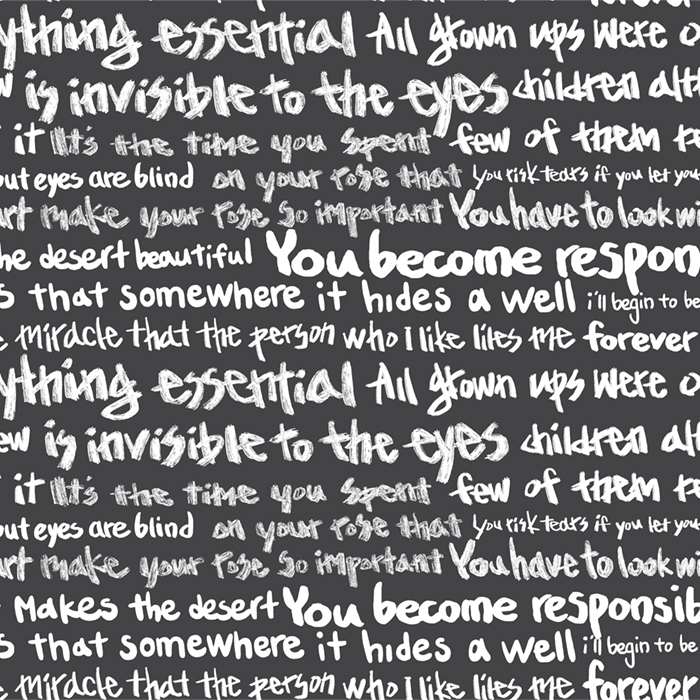 ything essential All grown ups were o
w is invisible to the eyes children alth
it It's the time you spent few of them re
but eyes are blind on your rose that You risk tears if you let you
art make your rose so important You have to look wi
he desert beautiful You become respon
s that somewhere it hides a well i'll begin to be
e miracle that the person who I like likes me forever
ything essential All grown ups were o
ew is invisible to the eyes children alth
it It's the time you spent few of them re
out eyes are blind on your rose that You risk tears if you let you
art make your rose so important You have to look wi
Makes the desert You become responsib
s that somewhere it hides a well i'll begin to be
e miracle that the person who I like likes me forever